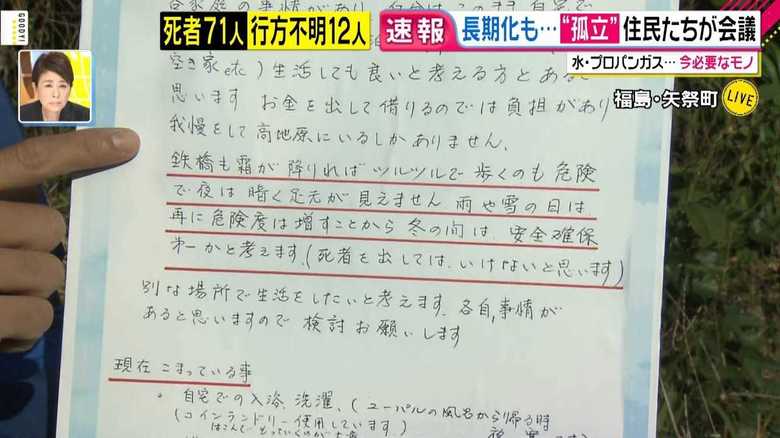 GOODY!
死者71人 行方不明12人
速報
長期化も…“孤立”住民たちが会議
水・プロパンガス…今必要なモノ
福島・矢祭町
LIVE
空き家etc)生活しても良いと考える方とあると
思います お金を出して借りるのでは負担があり
我慢をして高地原にいるしかありません。
鉄橋も霜が降りればツルツルで歩くのも危険
で夜は暗く足元が見えません 雨や雪の日は、
再に危険度は増すことから 冬の向は、安全確保
才一かと考えます。(死者を出しては、いけないと思います)
別な場所で生活をしたいと考えます。各自、事情が
あると思いますので検討お願いします
現在 こまっている事
。自宅での入浴、洗濯、(ユーパルの風呂から帰る時
(コインランドリー使用しています)